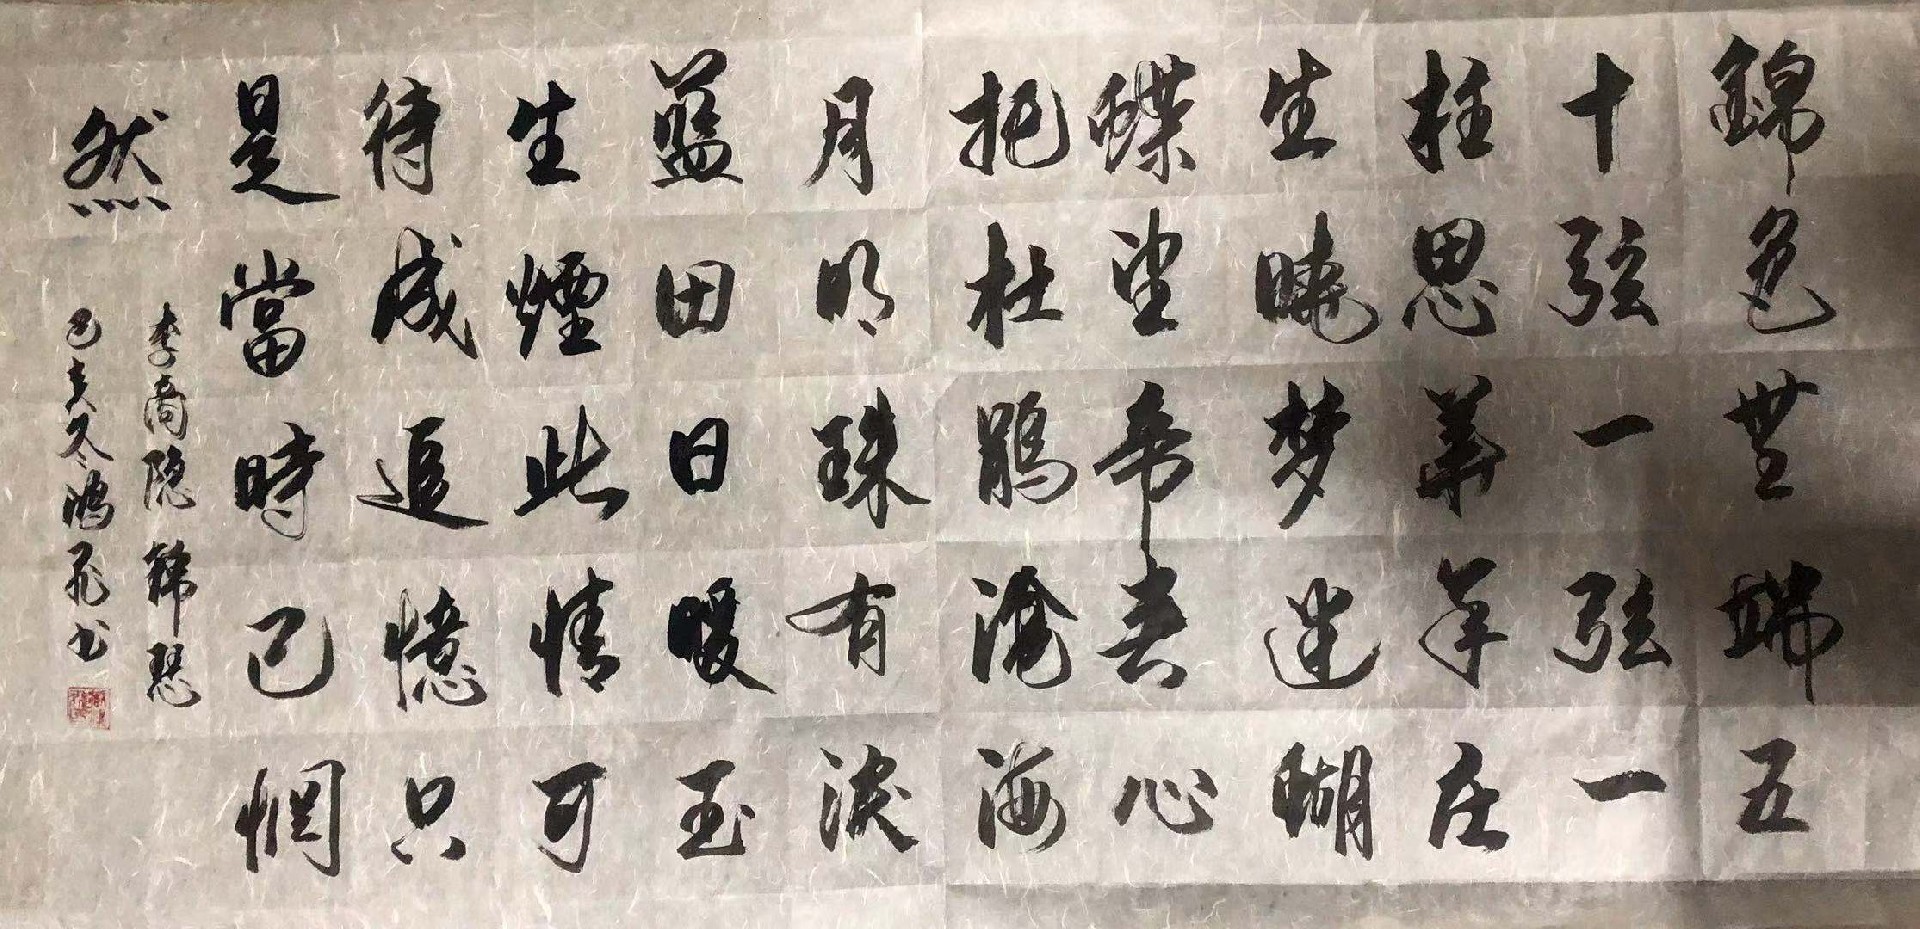 錦瑟無端五
十弦一弦一
柱思華年庄
生曉梦迷蝴
蝶望帝春心
托杜鵑滄海
月明珠有淚
藍田日暖玉
生煙此情可
待成追憶只
是當時已惘
然
李商隐錦瑟
己亥冬鴻飛书